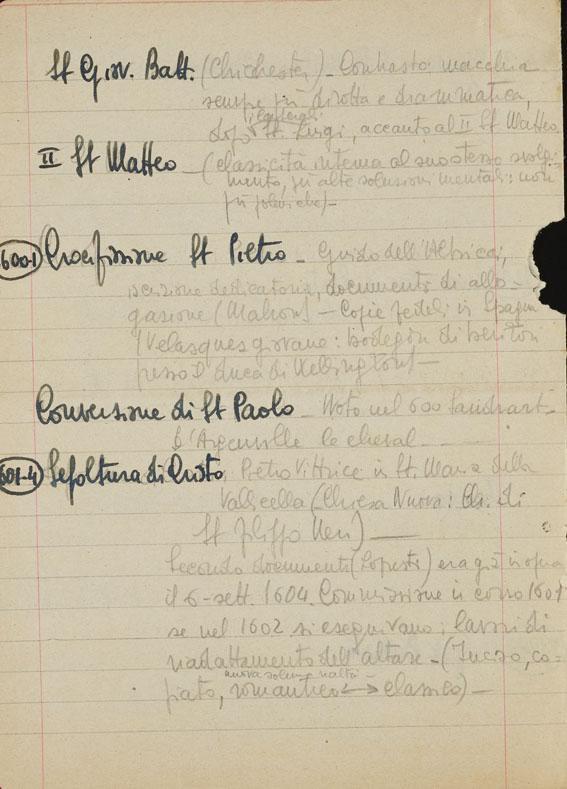 St Giov. Batt. (Chichester) - Contrasto macchia
sempre più dirotta e drammatica,
dopo St. Luigi, accanto al II St Matteo
II St Matteo - (classicità interna al suo stesso svolgi-
mento, più alte soluzioni mentali: non
più
600-1 Crocifissione St Pietro - Guido dell'
iscrizione dedicatoria, documento di allo-
gazione (Mahon) - Copie fedeli in Spagna
(Velasques giovane: bodegón di
presso il duca di Wellington) -
Conversione di St Paolo - Noto nel 600 Sandrart -
D'Argenville le cheval -
601-4 Sepoltura di Cristo, Pietro Vittrice in St. Maria della
Vallicella (Chiesa Nuova: di
St Filippo Neri) -
Secondo documenti (Lopresti) era già in opera
il 6 sett. 1604. Commissione in corso 1601
se nel 1602 si eseguivano i lavori di
riadattamento dell'altare - (Inciso, co-
nuova
piato, romantico ↔ classico) -